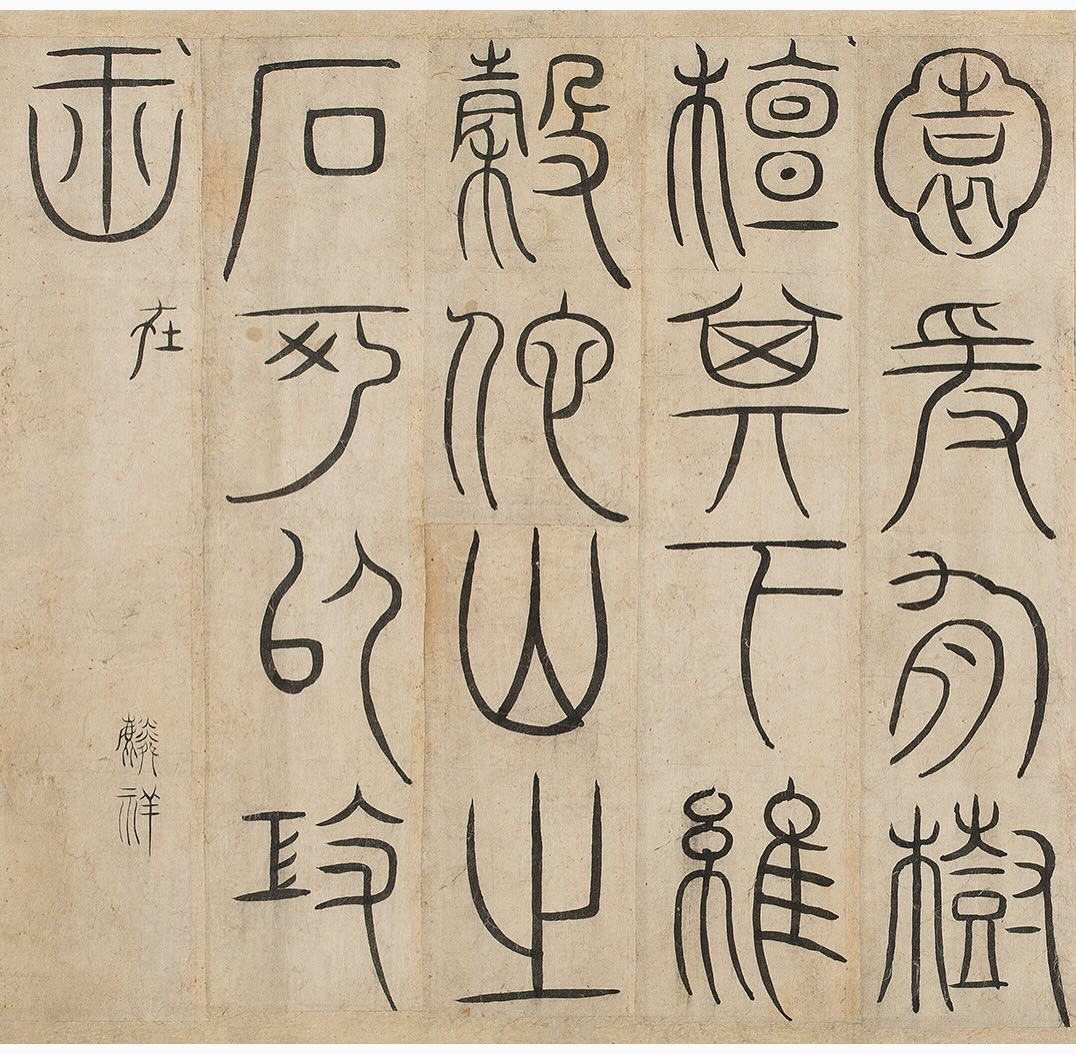 園爰有樹
檀其下維
穀佗山之
石可以攻
玉
在
麟祥